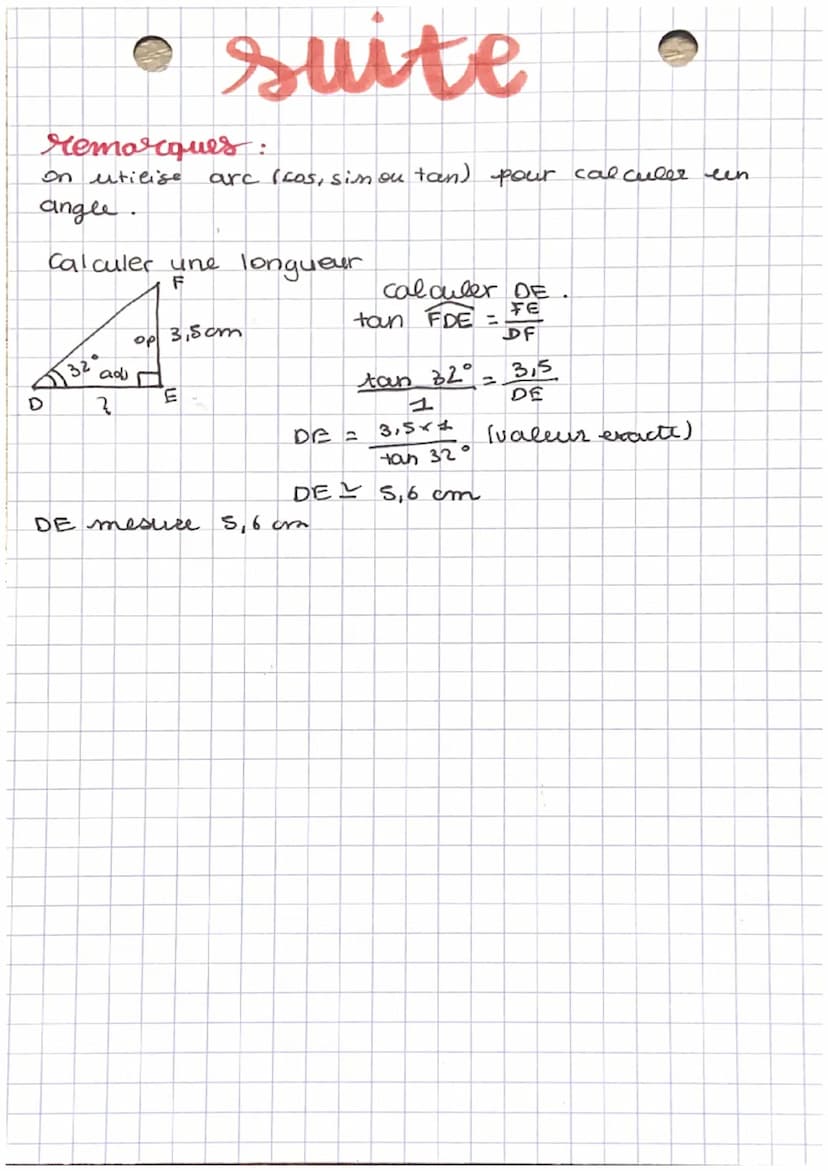 suite
Remarques :
on utilise arc (cos, sin ou tan) pour calculer un
angle.
Calculer une longueur
F
calculer DE.
tan FDE = FE/DF
op 3,5cm
32° adj
tan 32°/1 = 3,5/DE
D ? E
DE = 3,5×1/tan 32° (valeur exacte)
DE ≃ 5,6 cm
DE mesure 5,6 cm